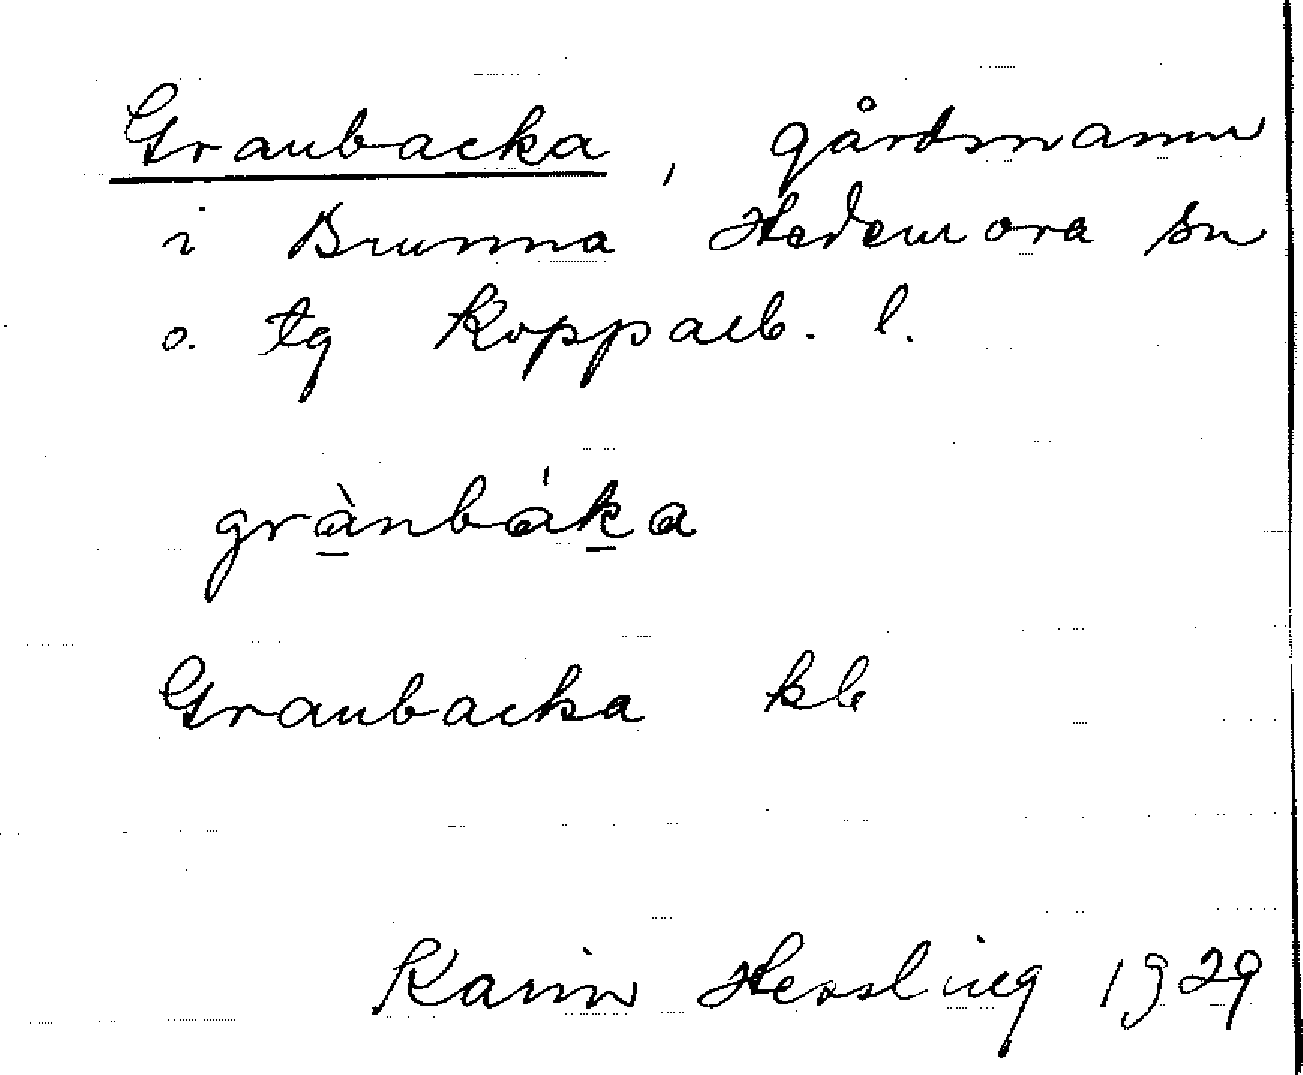 Granbacka, gårdsnamn
i Brunna Hedemora sn
o. tg Kopparb. l.
grànbáka
Granbacka kb
Karin Hessling 1929